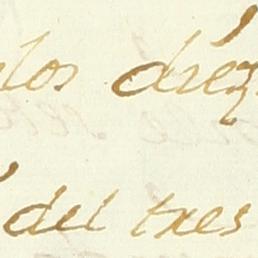 los diez
del tres